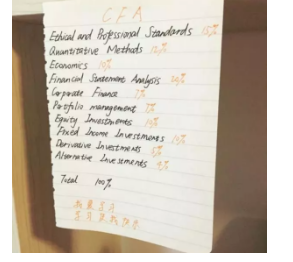 CFA
Ethical and Professional Standards 15%
Quantitative Methods 12%
Economics 10%
Financial Statement Analysis 20%
Corporate Finance 7%
Portfolio management 7%
Equity Investments 10%
Fixed Income Investments 10%
Derivative Investments 5%
Alternative Investments 4%
Total 100%